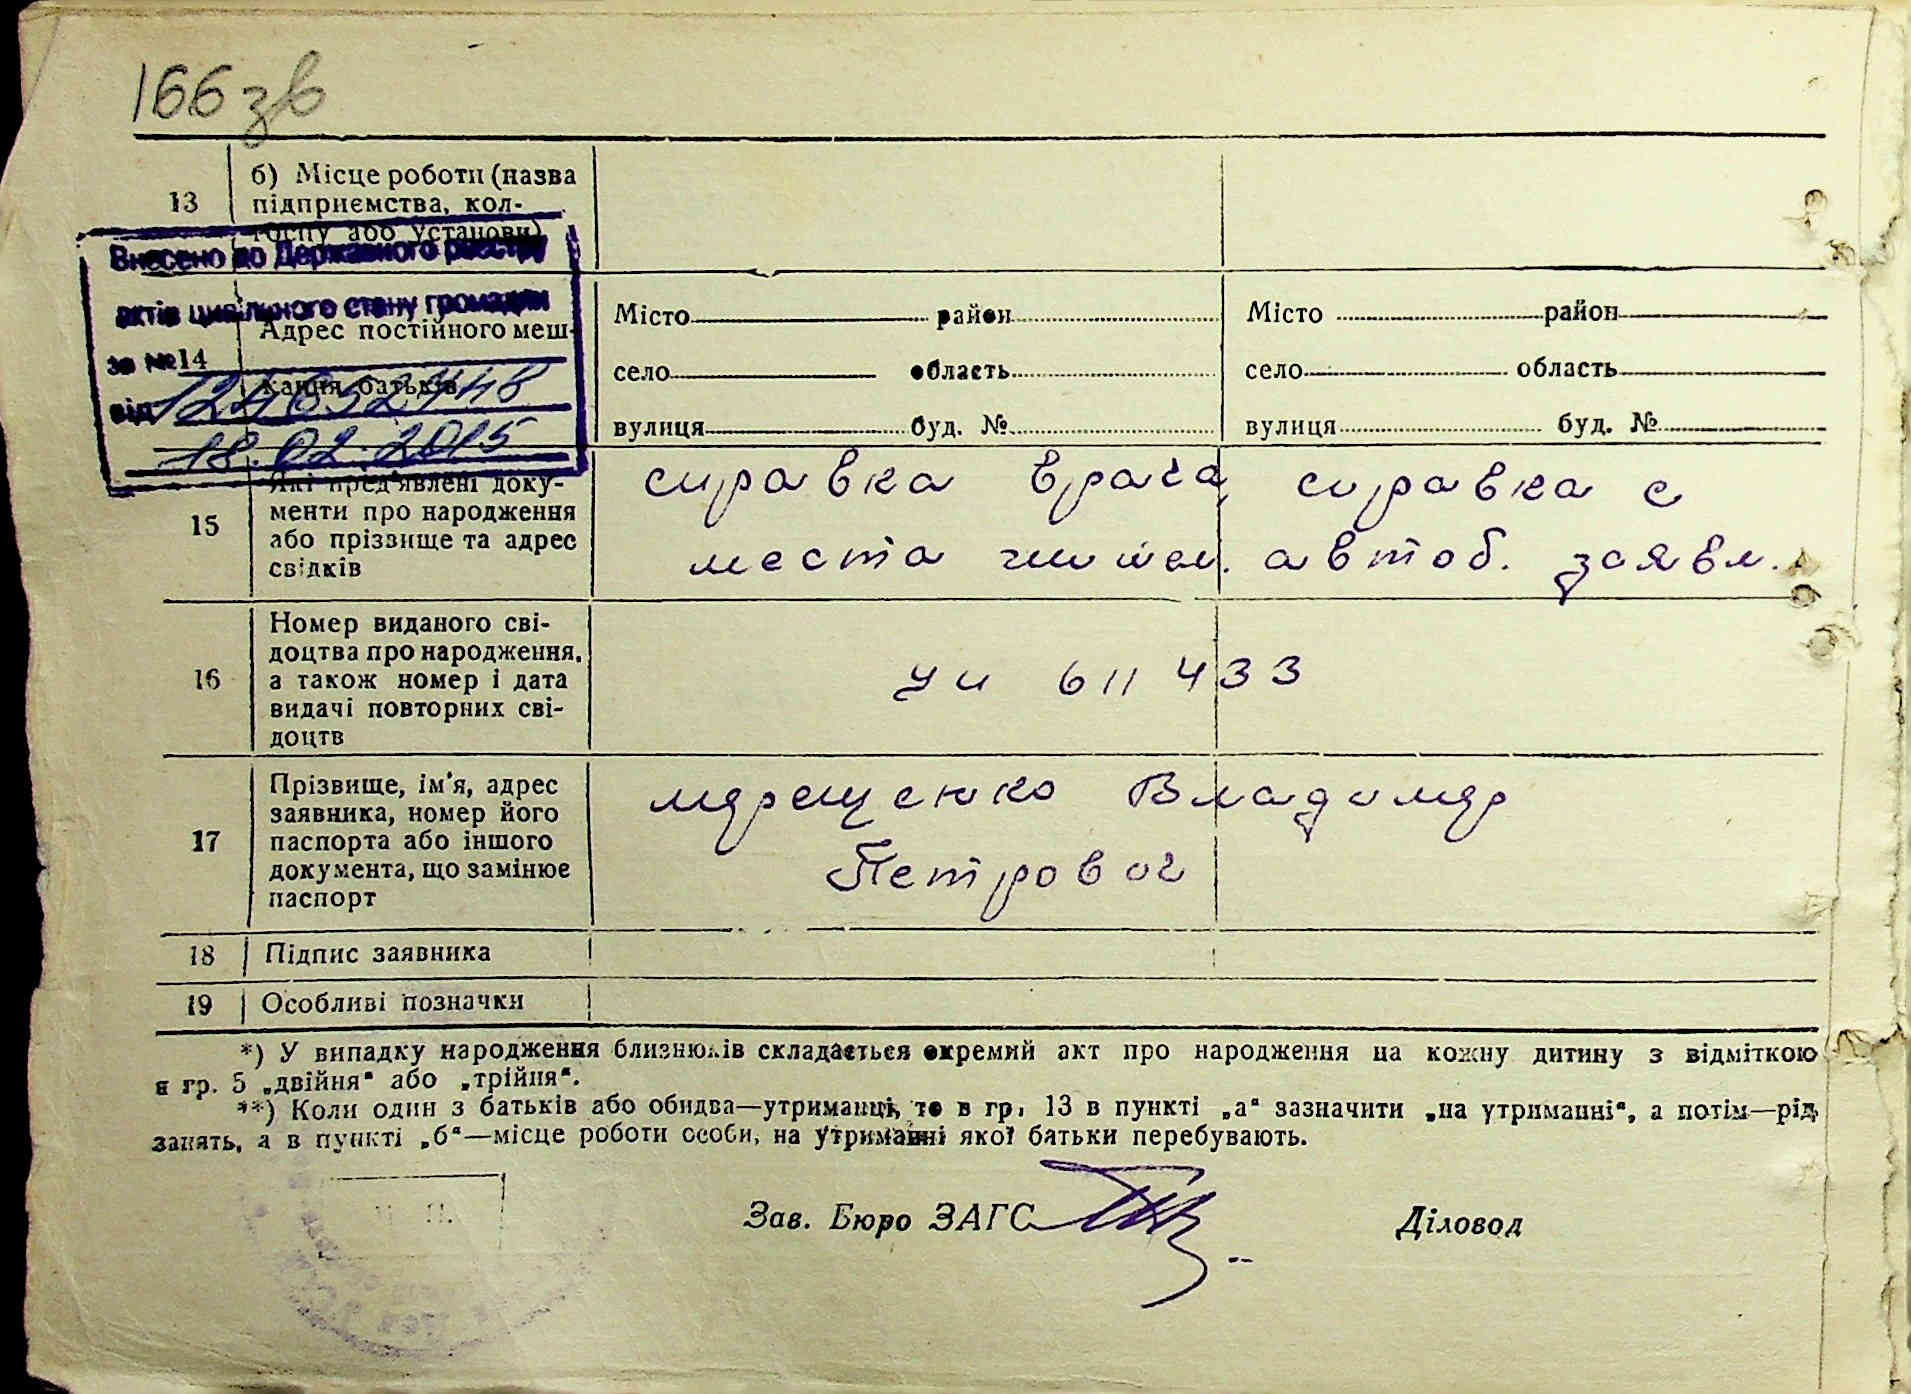 166 зв
13
б) Місце роботи (назва
підприємства, кол-
госпу або установи)
Внесено до Державного реєстру
актів цивільного стану громадян
за №
від 124652448
18.02.2015
14
Адрес постійного меш-
кання батьків
Місто район
село область
вулиця буд. №
Місто район
село область
вулиця буд. №
15
Які пред'явлені доку-
менти про народження
або прізвище та адрес
свідків
справка врача, справка с
места жител. автоб. заявл.
16
Номер виданого сві-
доцтва про народження,
а також номер і дата
видачі повторних сві-
доцтв
УИ 611433
17
Прізвище, ім'я, адрес
заявника, номер його
паспорта або іншого
документа, що замінює
паспорт
Владимир
Петрович
18 Підпис заявника
19 Особливі позначки
*) У випадку народження близнюків складається окремий акт про народження на кожну дитину з відміткою
в гр. 5 „двійня“ або „трійня“.
**) Коли один з батьків або обидва—утриманці, то в гр. 13 в пункті „а“ зазначити „на утриманні“, а потім—рід
занять, а в пункті „б“—місце роботи особи, на утриманні якої батьки перебувають.
Зав. Бюро ЗАГС
Діловод